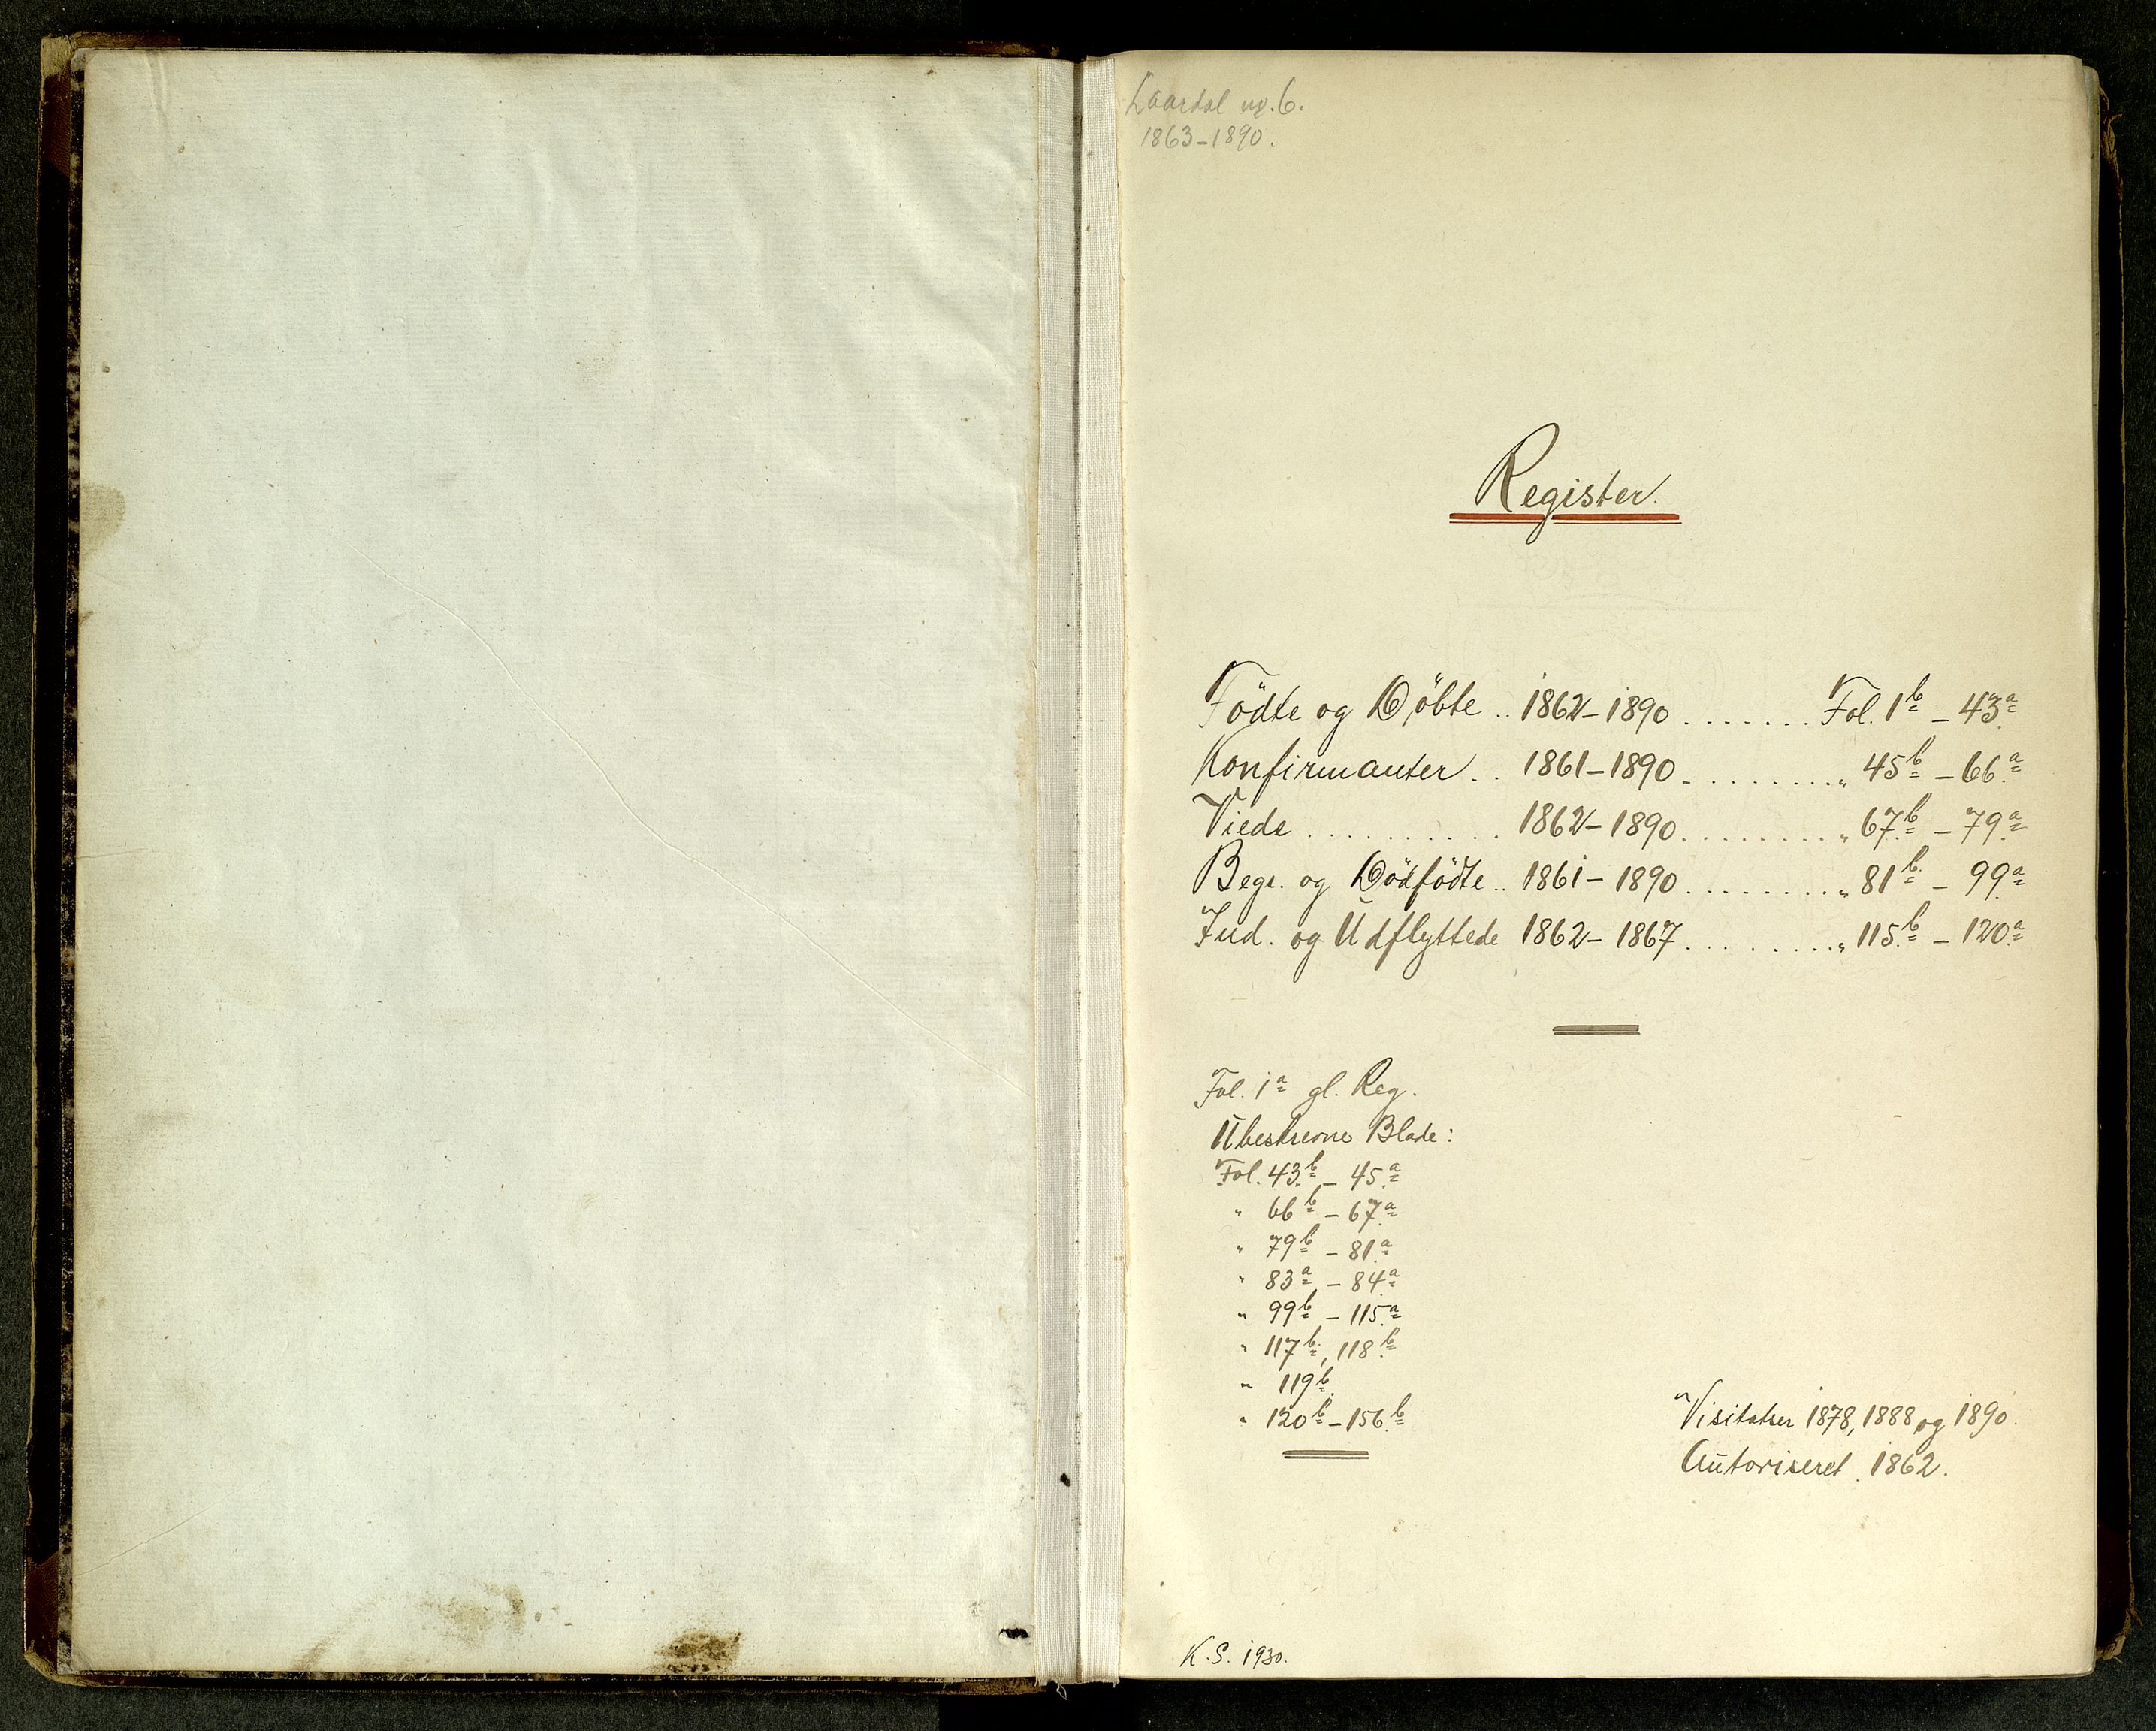 Laardal no. 6.
1863-1890.
Register.
Födte og Döbte .. 1862-1890 ....... Fol. 1b - 43a
Konfirmanter .. 1861-1890 ........ " 45b - 66a
Viede .......... 1862-1890 ........ " 67b - 79a
Begr. og Dödfödte .. 1861-1890 ........ " 81b - 99a
Ind. og Udflyttede 1862-1867 ........ " 115b - 120a
Fol. 1a gl. Reg.
Ubeskrevne Blade:
Fol. 43b - 45a
" 66b - 67a
" 79b - 81a
" 83a - 84a
" 99b - 115a
" 117b, 118b
" 119b.
" 120b - 156b
Visitatser 1878, 1888 og 1890
Autoriseret 1862.
K.S. 1930.